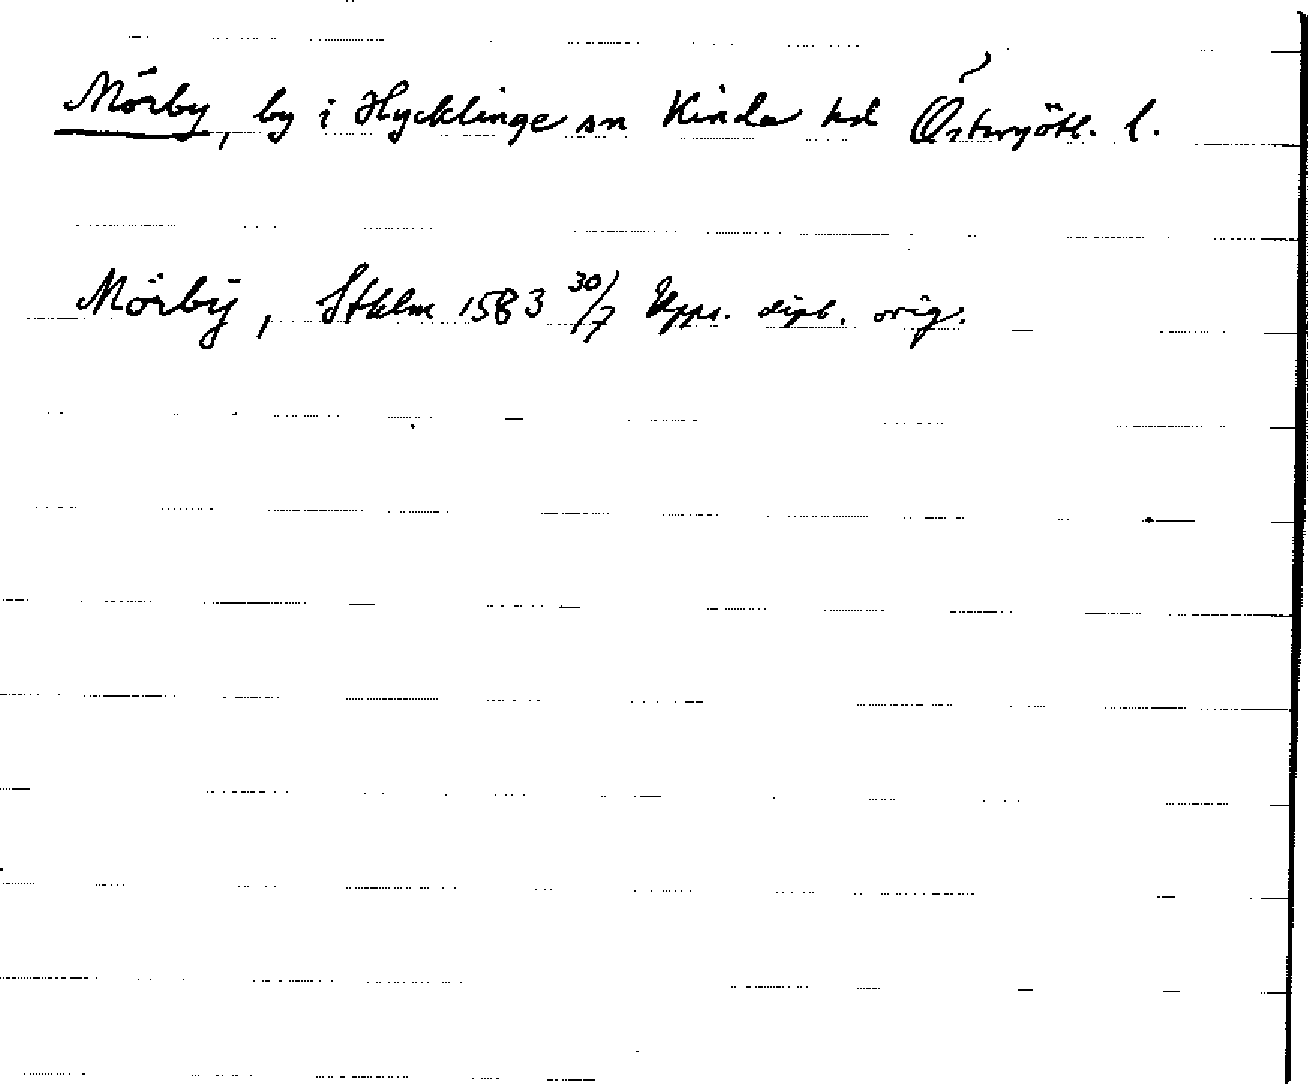 Mörby, by i Hycklinge sn Kinda hd Östergötl. l.
Mörbÿ, Sthlm 1583 30/7 Upps. dipl. orig.